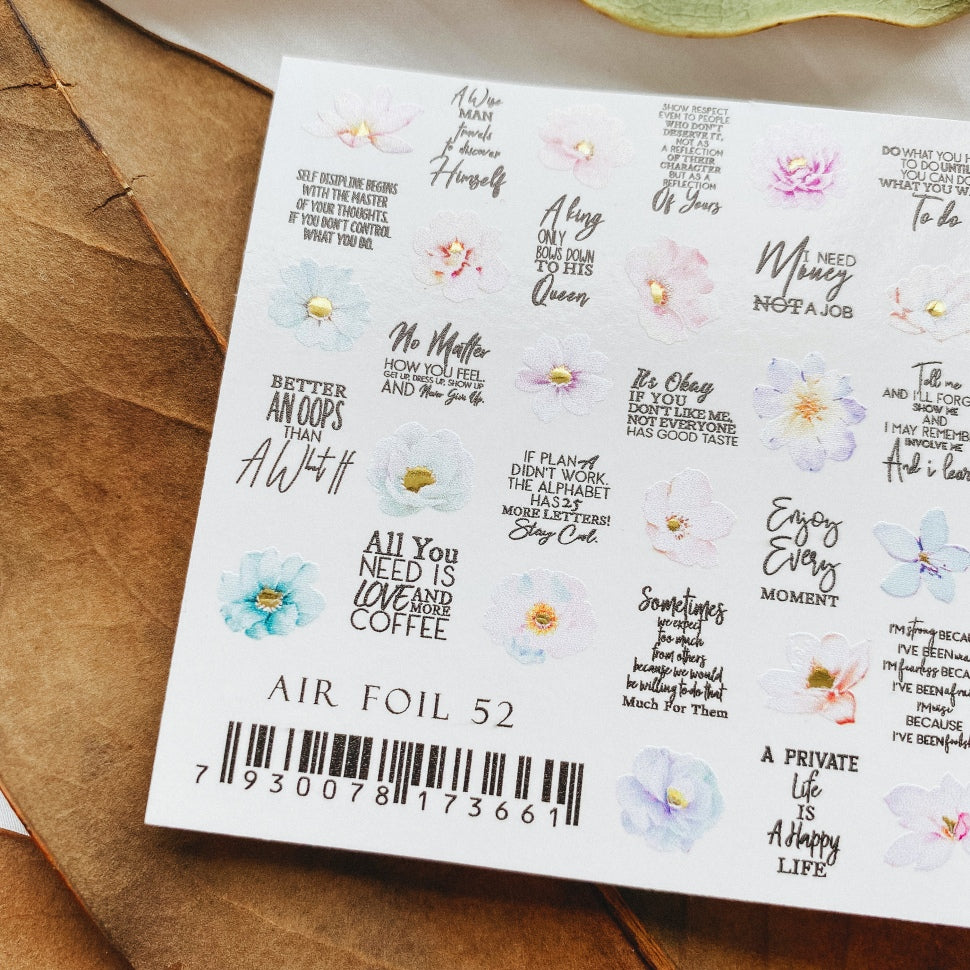 A Wise
MAN
travels
to discover
Himself
SHOW RESPECT
EVEN TO PEOPLE
WHO DON'T
DESERVE IT,
NOT AS
A REFLECTION
OF THEIR
CHARACTER
BUT AS A
REFLECTION
Of Yours
DO WHAT YOU H
TO DO UNTIL
YOU CAN DO
WHAT YOU W
To do
SELF DISCIPLINE BEGINS
WITH THE MASTER
OF YOUR THOUGHTS.
IF YOU DON'T CONTROL
WHAT YOU DO.
A king
ONLY
BOWS DOWN
TO HIS
Queen
I NEED
Money
NOT A JOB
No Matter
HOW YOU FEEL
GET UP, DRESS UP, SHOW UP
AND Never Give Up.
It's Okay
IF YOU
DON'T LIKE ME,
NOT EVERYONE
HAS GOOD TASTE
Tell me
AND I'LL FORG
SHOW ME
AND
I MAY REMEMB
INVOLVE ME
And i lear
BETTER
AN OOPS
THAN
A What If
IF PLAN A
DIDN'T WORK.
THE ALPHABET
HAS 25
MORE LETTERS!
Stay Cool.
Enjoy
Every
MOMENT
All You
NEED IS
LOVE AND
MORE
COFFEE
Sometimes
we expect
too much
from others
because we would
be willing to do that
Much For Them
I'M strong BECAU
I'VE BEEN wea
I'M fearless BECA
I'VE BEEN afra
I'M wise
BECAUSE
I'VE BEEN foolish
A PRIVATE
Life
IS
A Happy
LIFE
AIR FOIL 52
7 930078 173661